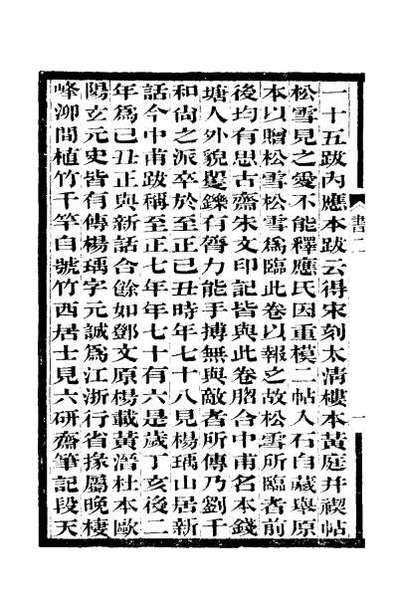 一十五跋內應本跋云得宋刻太清樓本黃庭并禊帖
松雪見之愛不能釋應氏因重模二帖入石自藏舉原
本以贈松雪松雪爲臨此卷以報之故松雪所臨者前
後均有思古齋朱文印記皆與此卷脗合中甫名本錢
塘人外貌矍鑠有膂力能手搏無與敵者所傳乃劉千
和尚之派卒於至正己丑時年七十八見楊瑀山居新
話今中甫跋稱至正七年年七十有六是歲丁亥後二
年爲己丑正與新話合餘如鄧文原楊載黃溍杜本歐
陽玄元史皆有傳楊瑀字元誠爲江浙行省掾屬晚棲
峰泖間植竹千竿自號竹西居士見六研齋筆記段天
書二
一